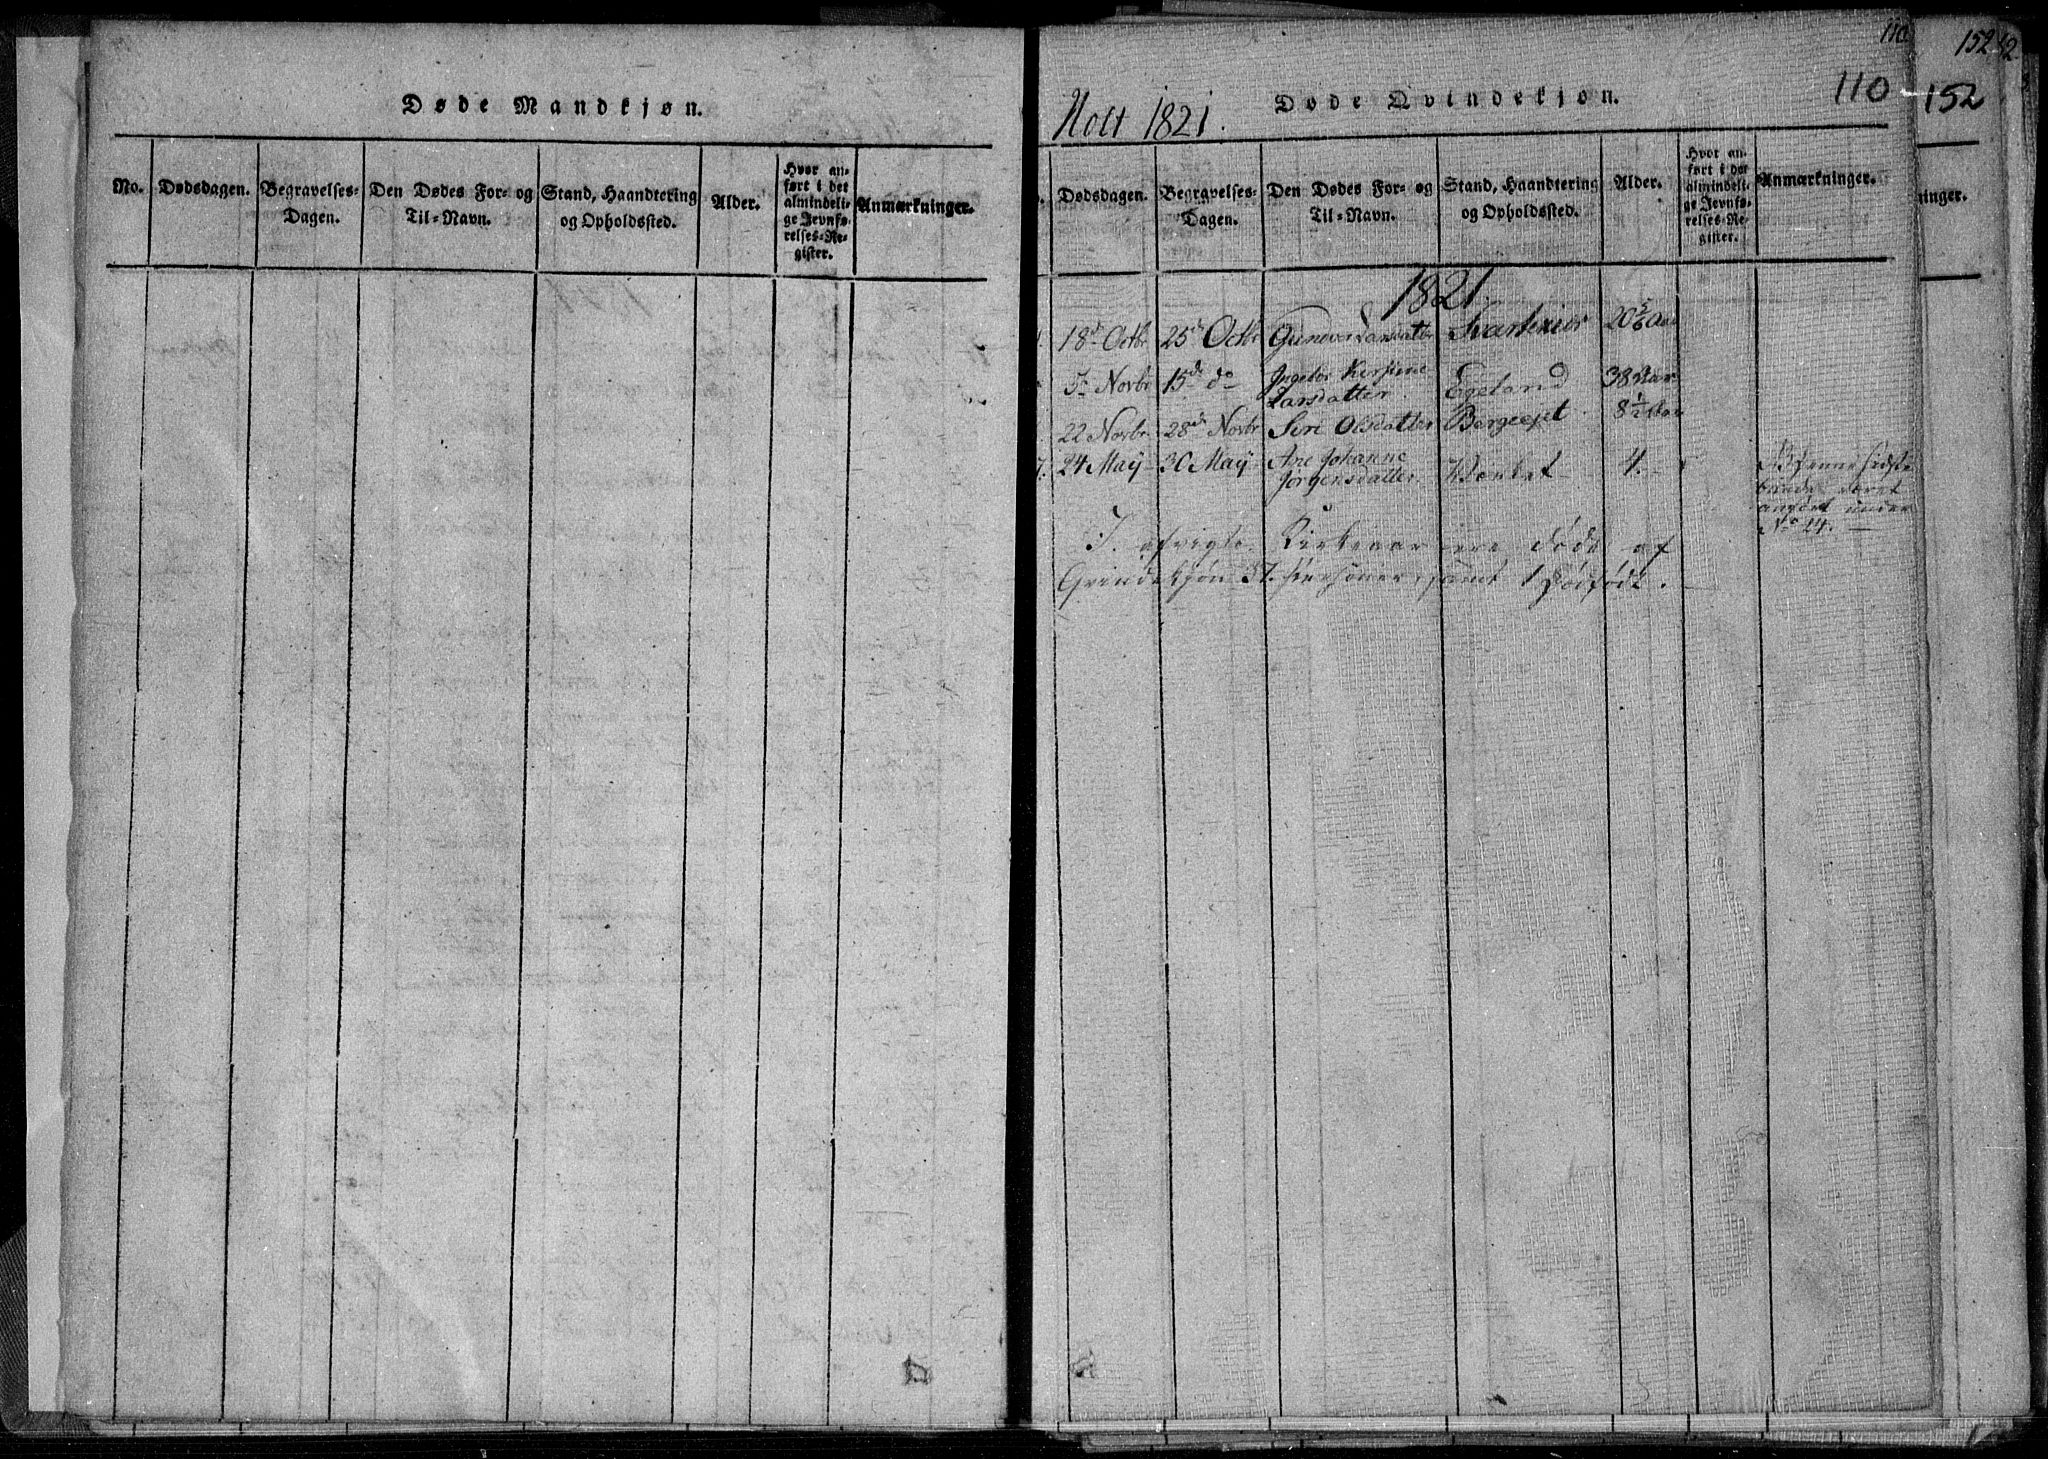 Døde Mandkjøn.
No.
Dødsdagen.
Begravelses-
Dagen.
Den Dødes For- og
Til-Navn.
Stand, Haandtering
og Opholdssted.
Alder.
Hvor an-
ført i det
almindeli-
ge Jevnfø-
relses-Re-
gister.
Anmærkninger.
110
152
Holt 1821.
Døde Qvindekjøn.
110
152
Dødsdagen.
Begravelses-
Dagen.
Den Dødes For- og
Til-Navn.
Stand, Haandtering
og Opholdssted.
Alder.
Hvor an-
ført i det
almindeli-
ge Jevnfø-
relses-Re-
gister.
Anmærkninger.
ninger.
1821
18d Octbr 25d Octbr Gunvor Larsdatter 20 5/6 Aar
5 Novbr 15de do Ingebor Kirstine
Larsdatter. Egeland 38 Aar
22 Novbr 28de Novbr Siri Olsdatter 8 1/2 Aar
7. 24 May 30 May Ane Johanne
Jørgensdatter 4.
anført under
No 14.
I afvigte Kirkeaar ere døde af
Qvindekjøn 37 Personer, samt 1 Dødfødt.